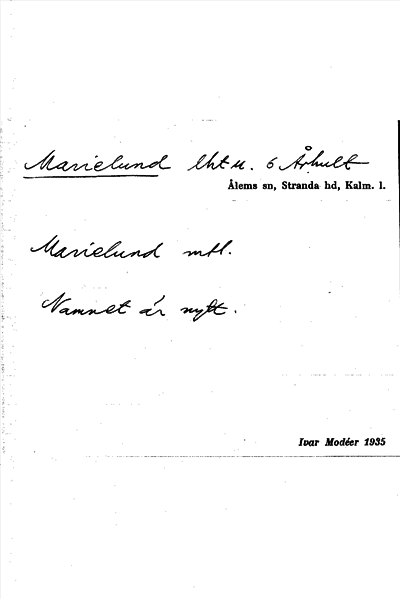 Marielund lht u. 6 Århult
Ålems sn, Stranda hd, Kalm. l.
Marielund mtl.
Namnet är nytt.
Ivar Modéer 1935